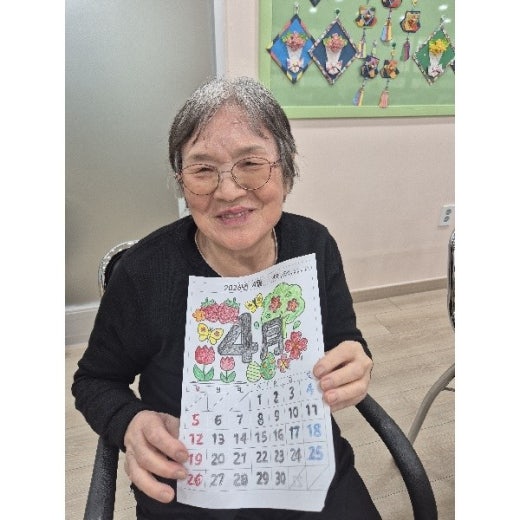 2026년 4월
4月
1 2 3 4
5 6 7 8 9 10 11
12 13 14 15 16 17 18
19 20 21 22 23 24 25
26 27 28 29 30